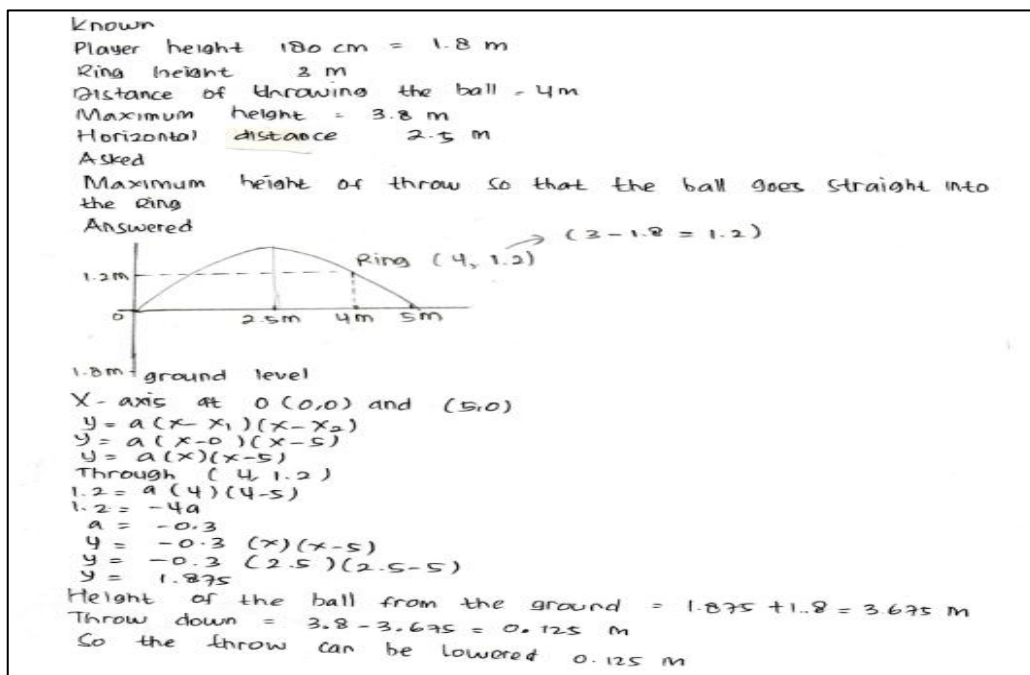 Known
Player height 180 cm = 1.8 m
Ring height 3 m
Distance of throwing the ball = 4m
Maximum height = 3.8 m
Horizontal distance 2.5 m
Asked
Maximum height of throw so that the ball goes straight into
the Ring
Answered
(3 - 1.8 = 1.2)
Ring (4, 1.2)
1.2m
0 2.5m 4m 5m
1.8m ground level
X-axis at 0 (0,0) and (5,0)
y = a(x - x₁)(x - x₂)
y = a(x-0)(x-5)
y = a(x)(x-5)
Through (4, 1.2)
1.2 = a(4)(4-5)
1.2 = -4a
a = -0.3
y = -0.3 (x)(x-5)
y = -0.3 (2.5)(2.5-5)
y = 1.875
Height of the ball from the ground = 1.875 + 1.8 = 3.675 m
Throw down = 3.8 - 3.675 = 0.125 m
So the throw can be lowered 0.125 m